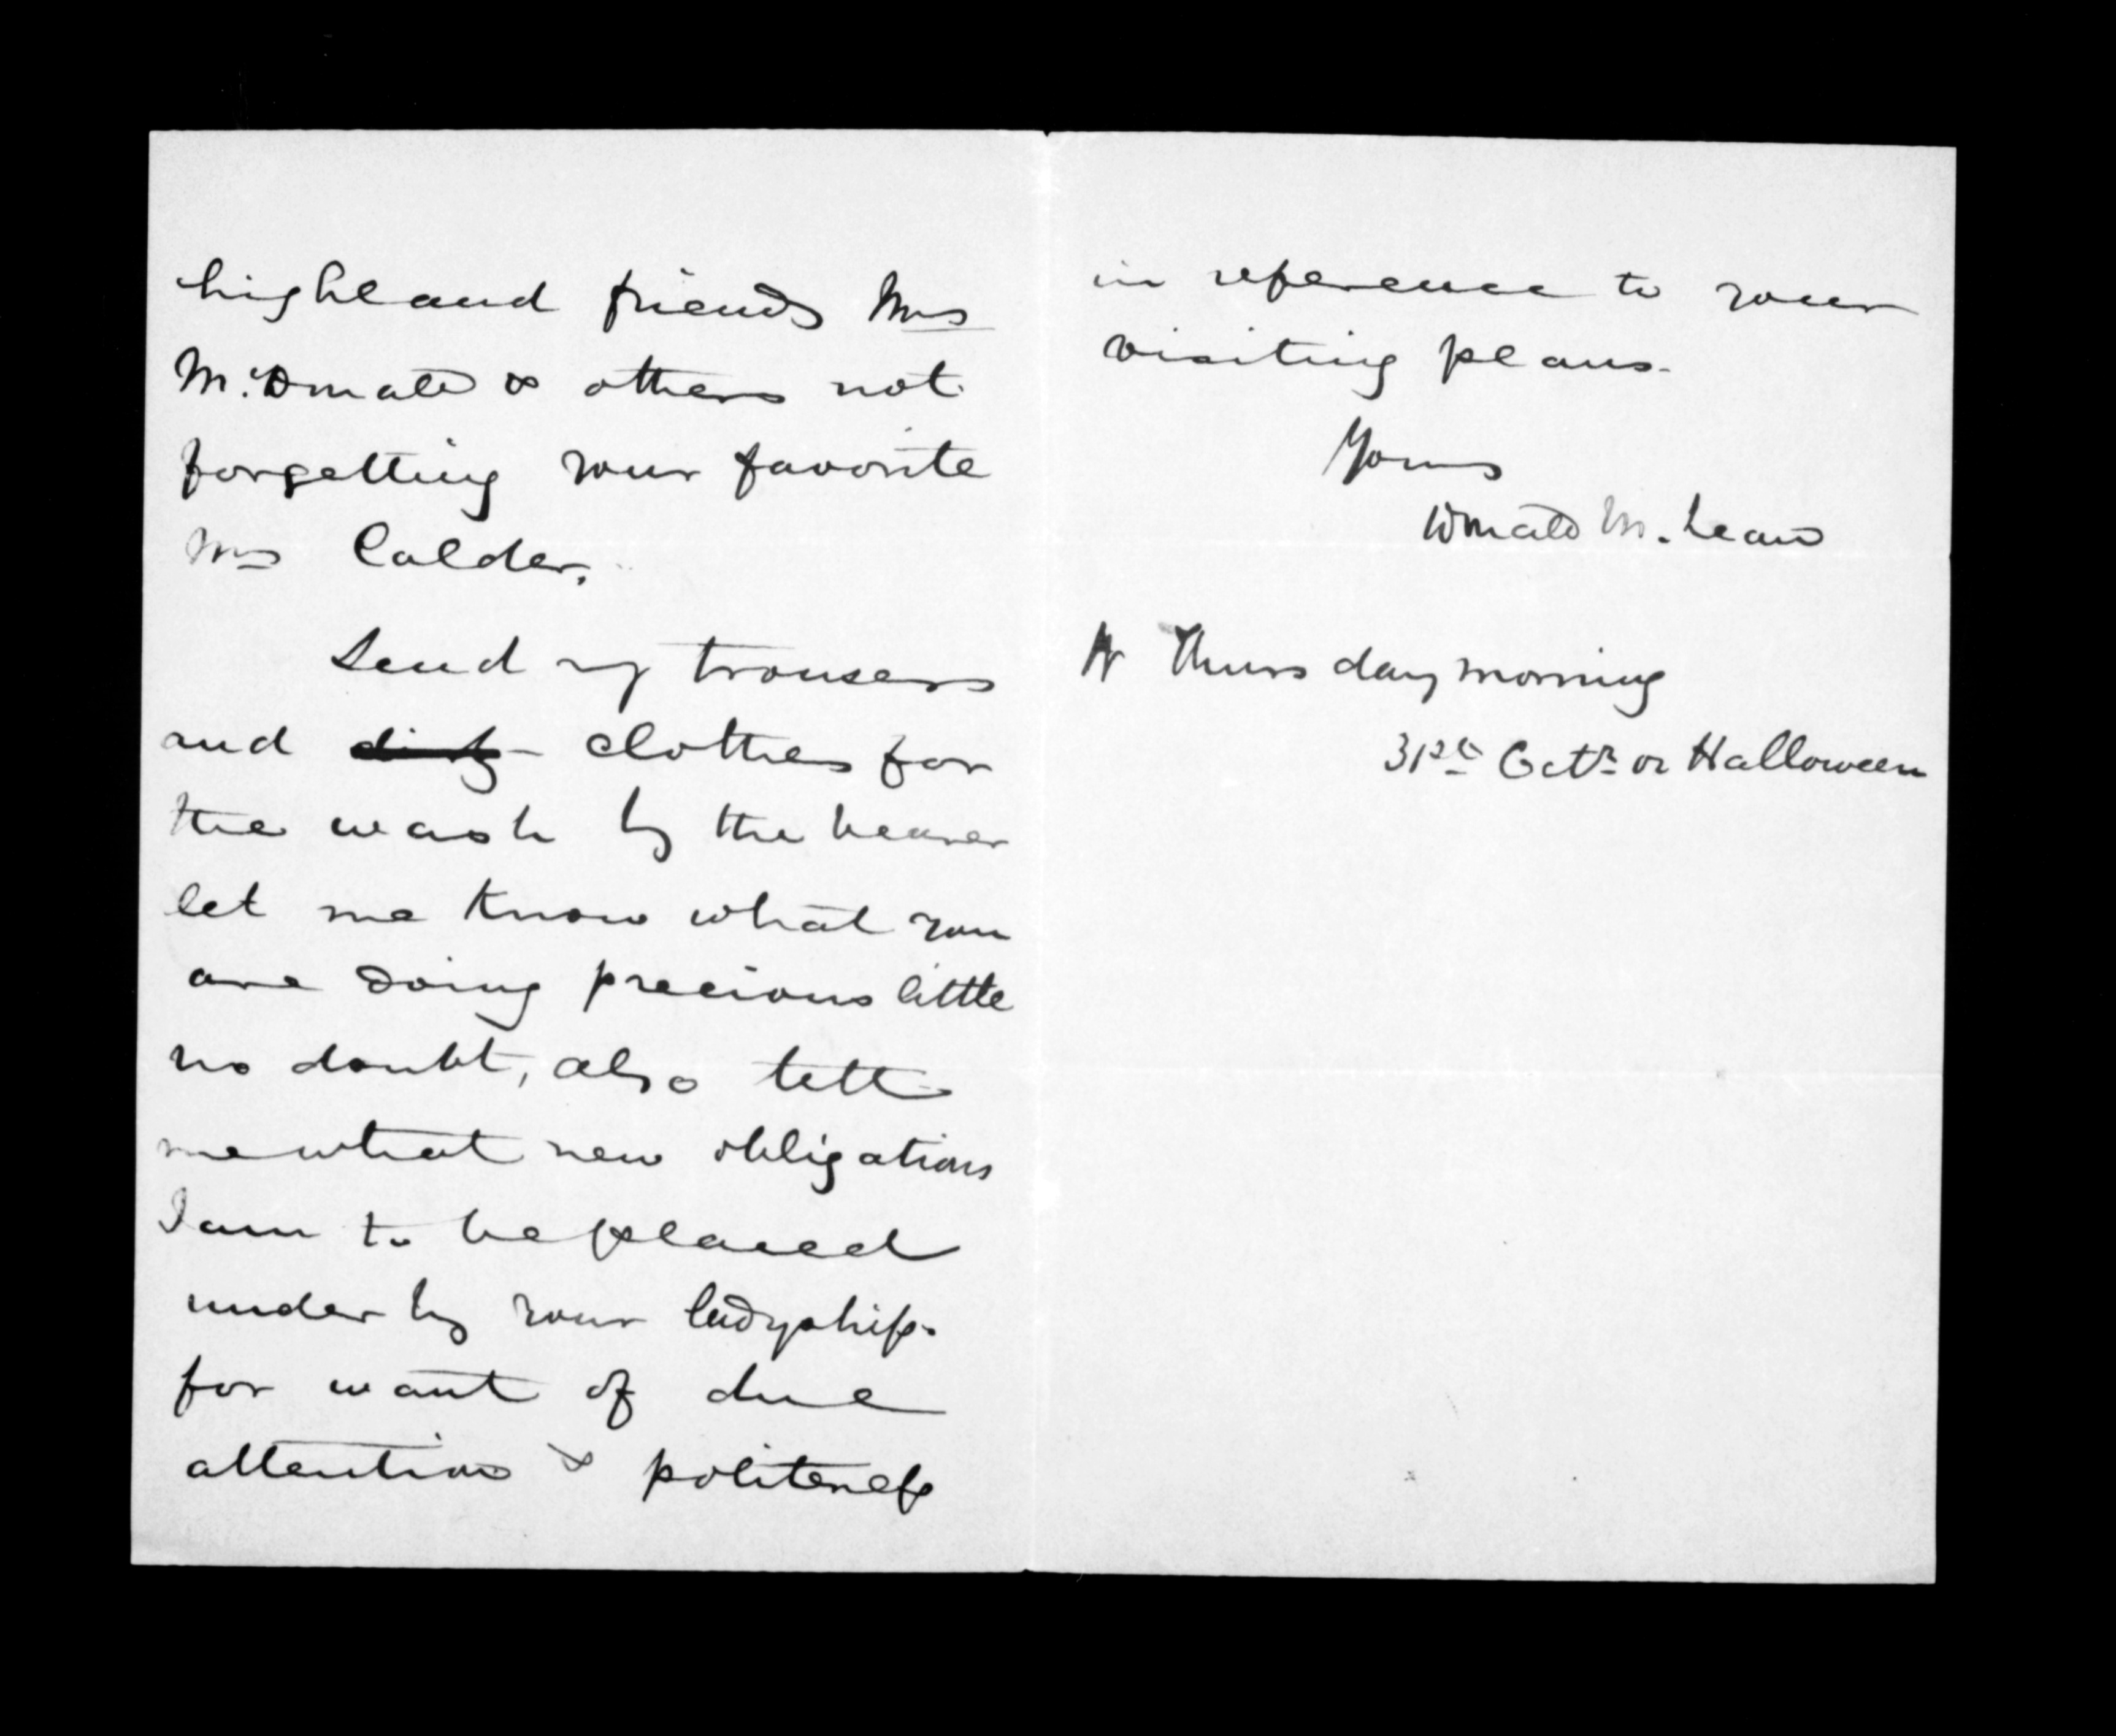 highland friends Mrs
McDonald & others not
forgetting your favorite
Mrs Calder.
Send my trousers
and dirty clothes for
the wash by the bearer
let me know what you
are doing precious little
no doubt, also tell
me what new obligations
I am to be placed
under by your ladyship.
for want of due
attention & politeness
in reference to your
visiting plans.
Yours
Donald McLean
Thursday morning
31st Octr or Halloween